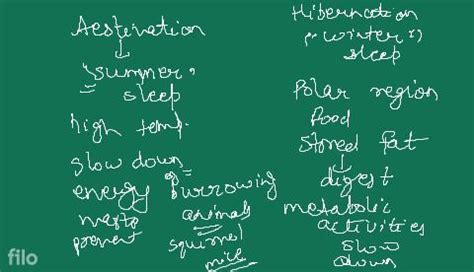 Aestivation
"summer"
sleep
high temp.
slow down
energy
waste
prevent
burrowing
animals
squirrel
mice
Hibernation
"winter"
sleep
Polar region
food
stored fat
digest
metabolic
activities
slow
down
filo